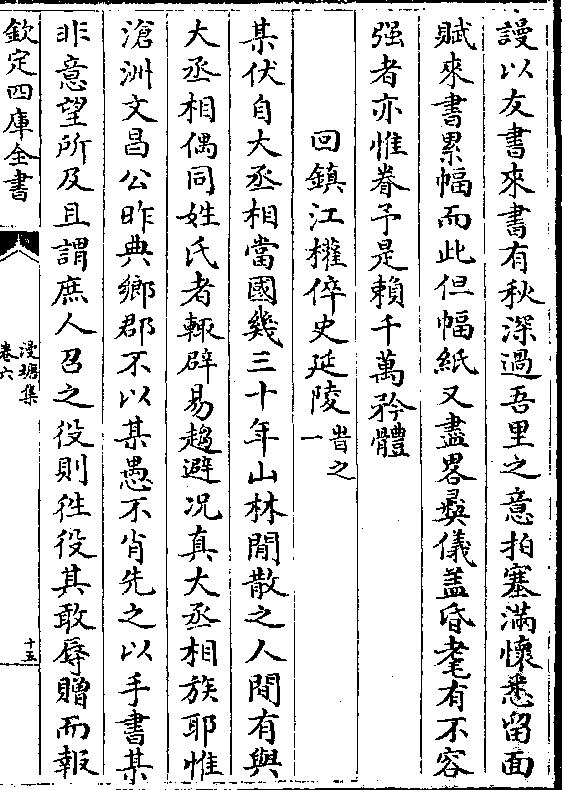 謾以友書來書有秋深過吾里之意拍塞滿懷悉留面
賦來書累幅而此但幅紙又盡畧彛儀盖昏耄有不容
强者亦惟眷予是賴千萬矜體
回鎮江權倅史延陵
旹之
一
某伏自大丞相當國幾三十年山林閒散之人間有與
大丞相偶同姓氏者輙辟易趨避况真大丞相族耶惟
滄洲文昌公昨典鄉郡不以某愚不肖先之以手書某
非意望所及且謂庶人召之役則徃役其敢辱贈而報
欽定四庫全書
漫塘集
卷六
十五